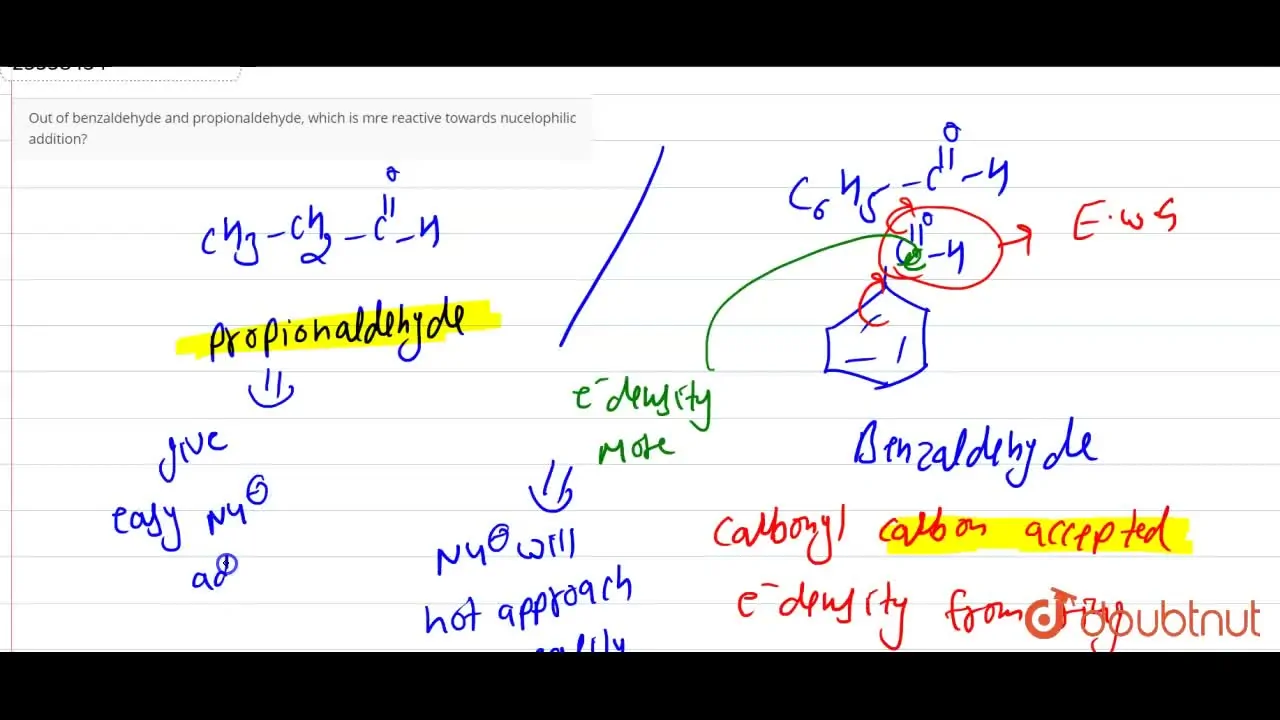 Out of benzaldehyde and propionaldehyde, which is mre reactive towards nucelophilic
addition?
CH3-CH2-C-H
O
propionaldehyde
give
easy Nu⊖
ad
e⁻density
More
Nu⊖ will
not approach
easily
C6H5-C-H
O
C-H
O
E.W.G
Benzaldehyde
carbonyl carbon accepted
e⁻density from ring
doubtnut